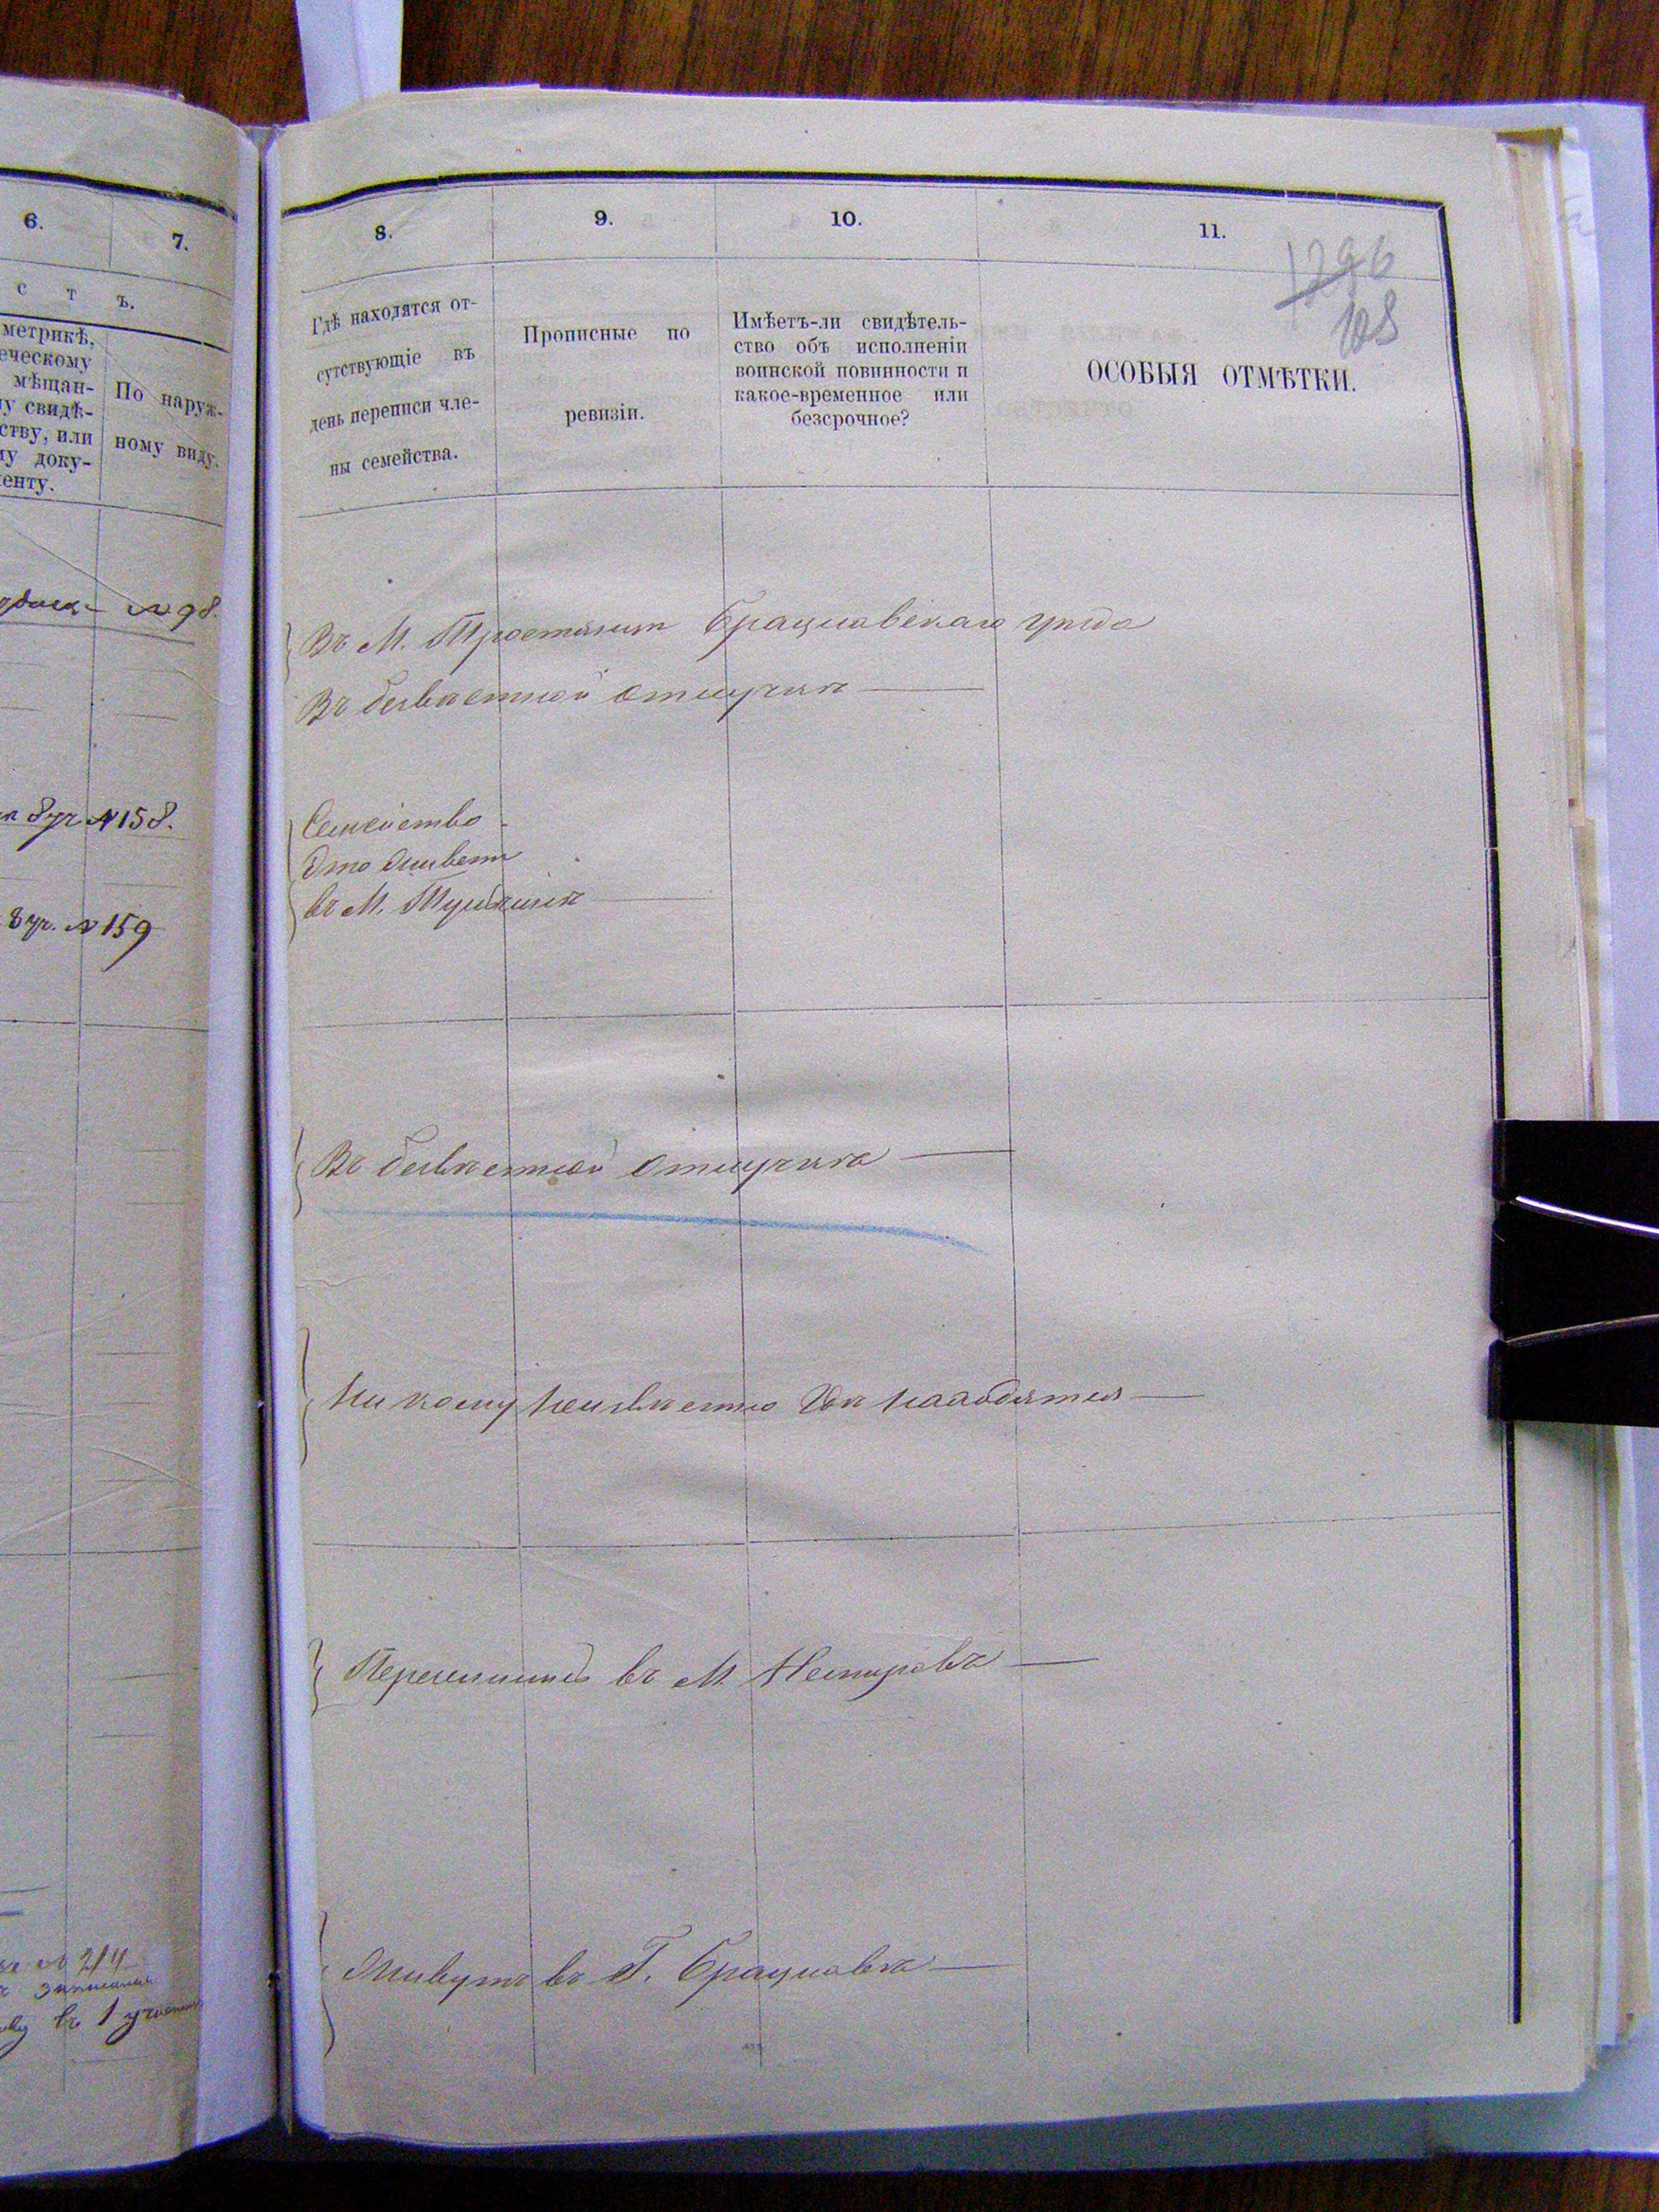 6.
7.
с т ъ.
метрикѣ,
еческому
мѣщан-
у свидѣ-
ству, или
у доку-
енту.
По наруж-
ному виду.
№ 98.
№ 158.
8 уч. № 159
№ 214
въ 1
8.
9.
10.
11.
1296
108
Гдѣ находятся от-
сутствующіе въ
день переписи чле-
ны семейства.
Прописные по
ревизіи.
Имѣетъ-ли свидѣтель-
ство объ исполненіи
воинской повинности и
какое-временное или
безсрочное?
ОСОБЫЯ ОТМѢТКИ.
Въ М. Тростянцѣ Брацлавскаго уѣзда
Въ безвѣстной отлучкѣ
Семейство
это живетъ
въ М. Тульчинѣ
Въ безвѣстной отлучкѣ
Ни кому неизвѣстно гдѣ находятся
Перечислены въ М. Немировъ
Живутъ въ Г. Брацлавѣ